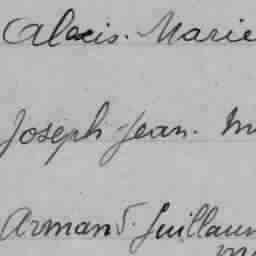 Alexis. Marie
Joseph Jean. M
Armand. Guillaum